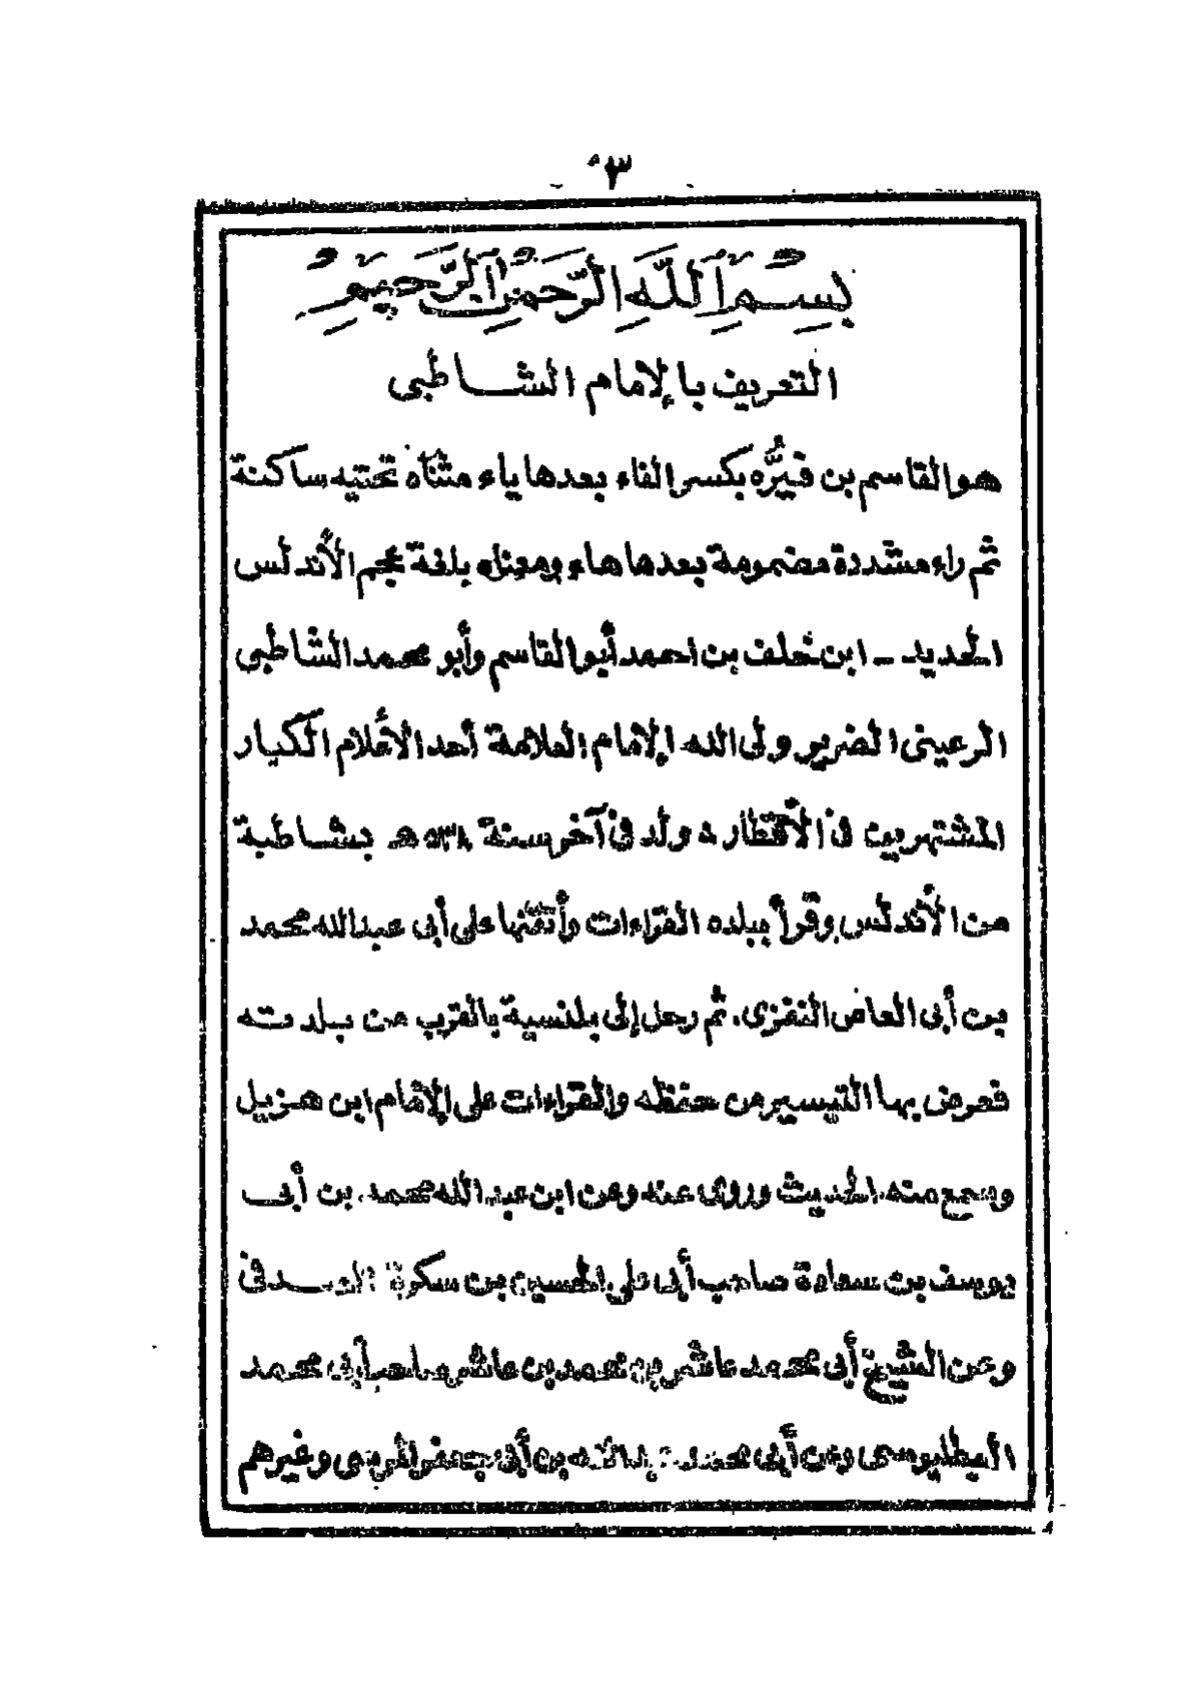 ٣
بِسْمِ اللَّهِ الرَّحْمَنِ الرَّحِيمِ
التعريف بالإمام الشاطبى
هو القاسم بن فيرُّه بكسر الفاء بعدها ياء مثناه تحتيه ساكنة
ثم راء مشددة مضمومة بعدها هاء ومعناه بلغة عجم الأندلس
الحديد - ابن خلف بن احمد أبو القاسم وأبو محمد الشاطبى
الرعينى الضرير ولى الله الإمام العلامة أحد الأعلام الكبار
المشتهرين فى الأقطار ولد فى آخر سنة ٥٣٨ هـ بشاطبة
من الأندلس وقرأ ببلده القراءات وأتقنها على أبى عبدالله محمد
بن أبى العاص النفزى. ثم رحل إلى بلنسية بالقرب من بلدته
فعرض بها التيسير من حفظه والقراءات على الإمام ابن هزيل
وسمع منه الحديث وروى عنه وعن ابن عبد الله محمد بن أبى
يوسف بن سعادة صاحب أبى على الحسين بن سكرة الصدفى
وعن الشيخ أبى محمد عاشر بن محمد بن عاشر صاحب أبى محمد
البطليوسى وعن أبى محمد بن أبى جعفر المرسى وغيرهم